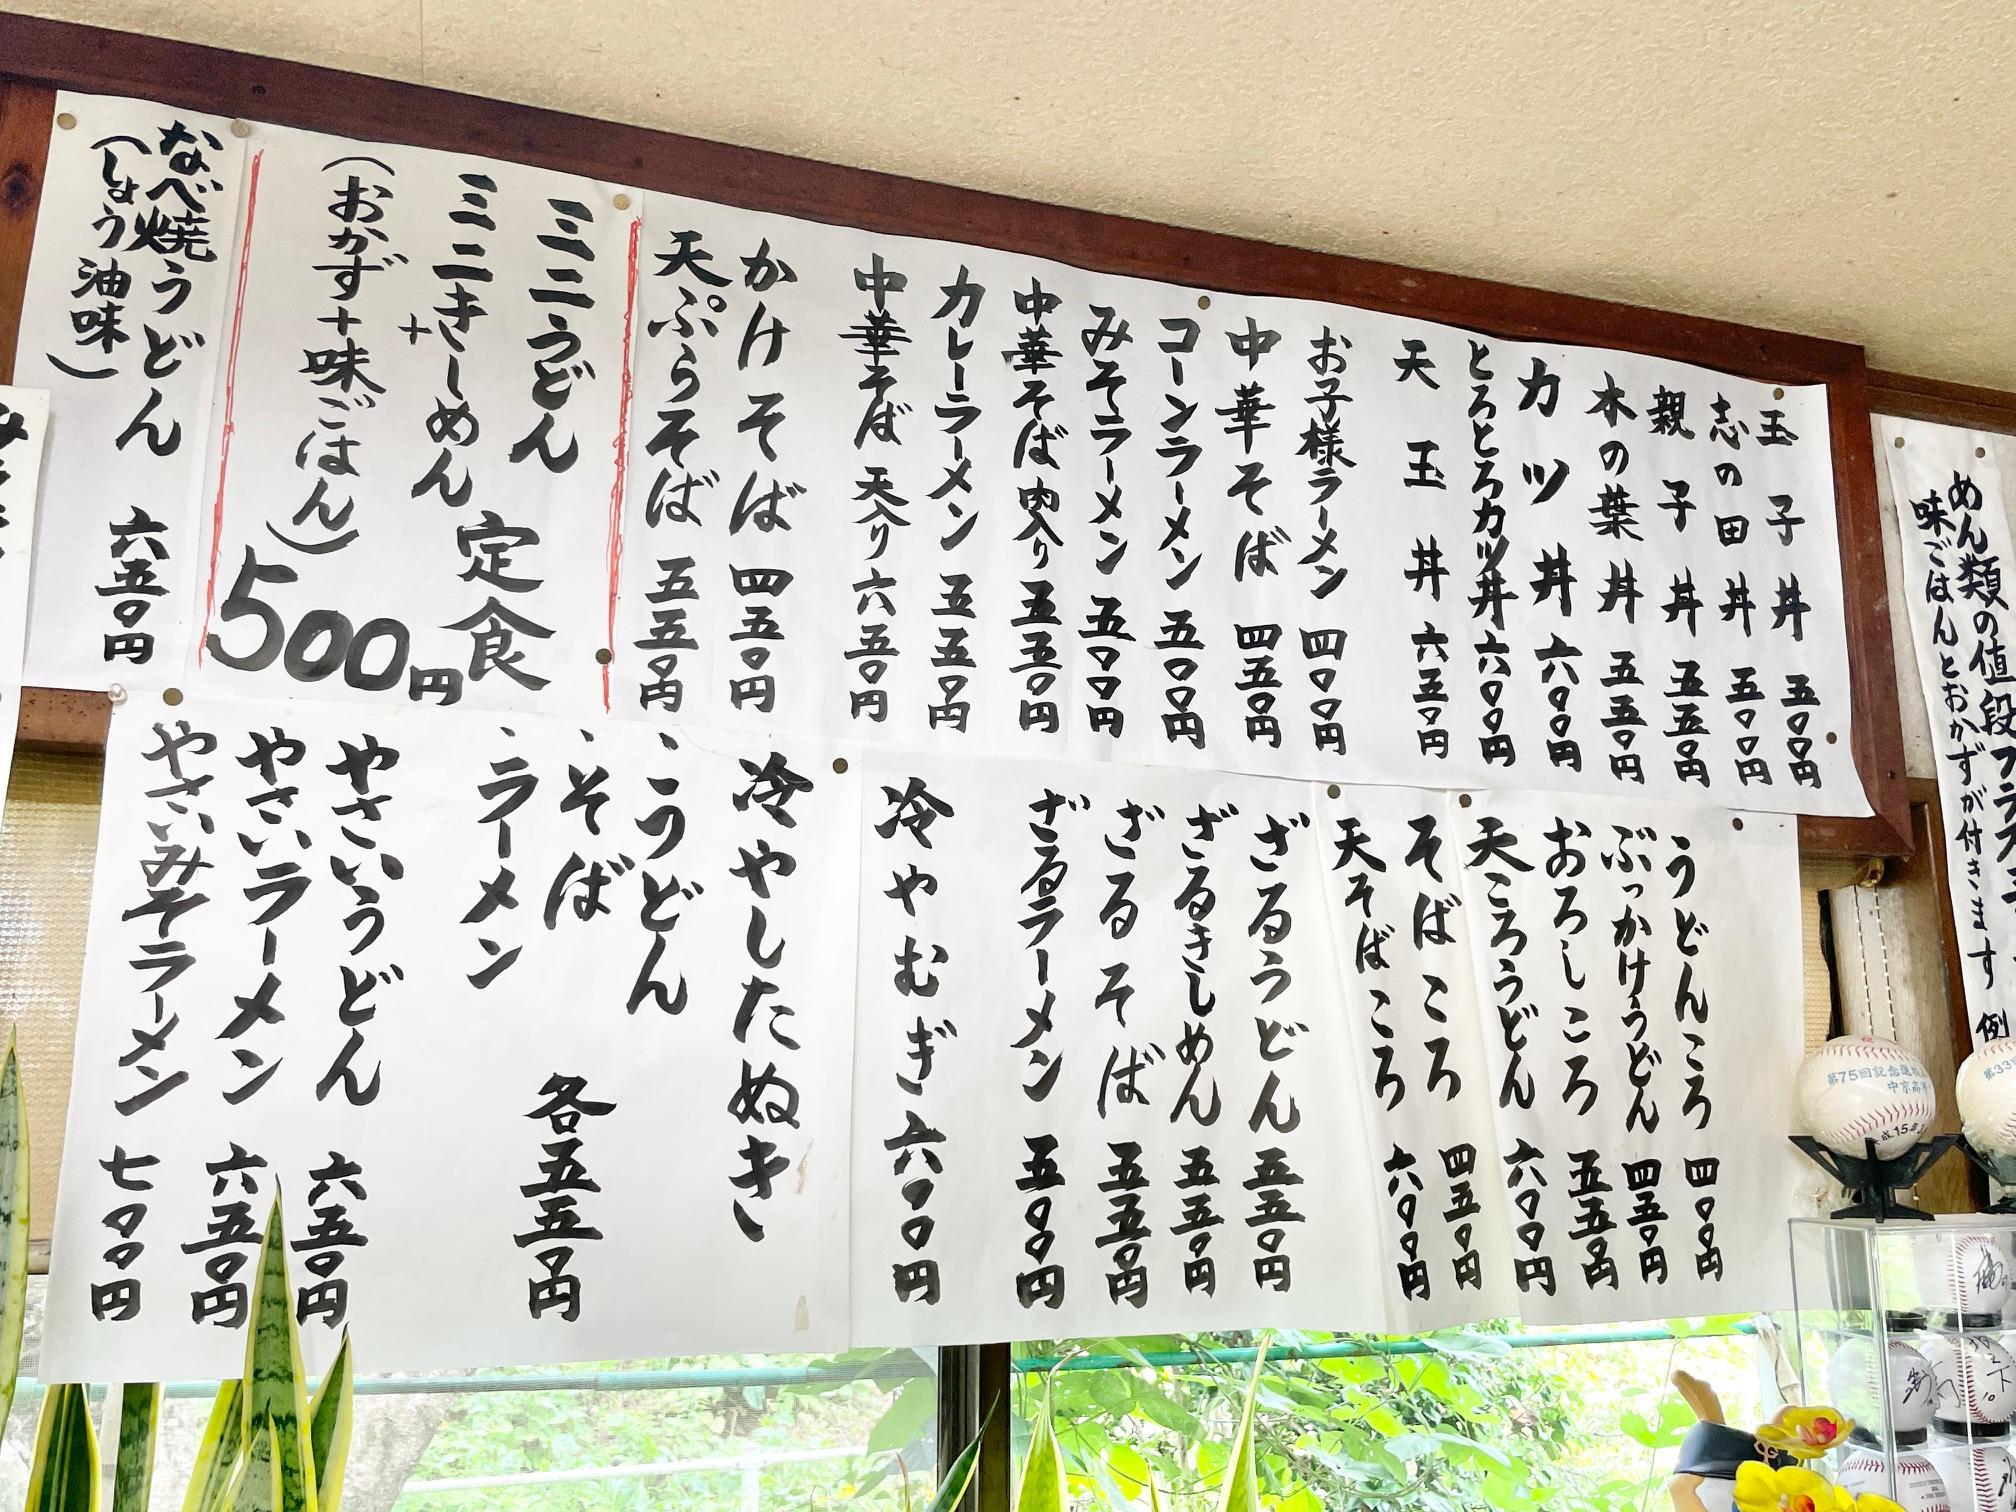 めん類の値段プラス
味ごはんとおかずが付きます 例
玉子丼 五〇〇円
志の田丼 五〇〇円
親子丼 五五〇円
木の葉丼 五五〇円
カツ丼 六〇〇円
とろとろカツ丼 六〇〇円
天玉丼 六五〇円
お子様ラーメン 四〇〇円
中華そば 四五〇円
コーンラーメン 五〇〇円
みそラーメン 五〇〇円
中華そば 肉入り 五五〇円
カレーラーメン 五五〇円
中華そば 天入り 六五〇円
かけそば 四五〇円
天ぷらそば 五五〇円
ミニうどん
ミニきしめん
+
定食
(おかず+味ごはん)
500円
なべ焼うどん 六五〇円
(しょう油味)
うどんころ 四〇〇円
ぶっかけうどん 四五〇円
おろしころ 五五〇円
天ころうどん 六〇〇円
そばころ 四五〇円
天そばころ 六〇〇円
ざるうどん 五五〇円
ざるきしめん 五五〇円
ざるそば 五五〇円
ざるラーメン 五〇〇円
冷やむぎ 六〇〇円
冷やしたぬき
〃うどん
〃そば 各五五〇円
〃ラーメン
やさいうどん 六五〇円
やさいラーメン 六五〇円
やさいみそラーメン 七〇〇円
第75回記念選抜
中京高
平成15年
第33